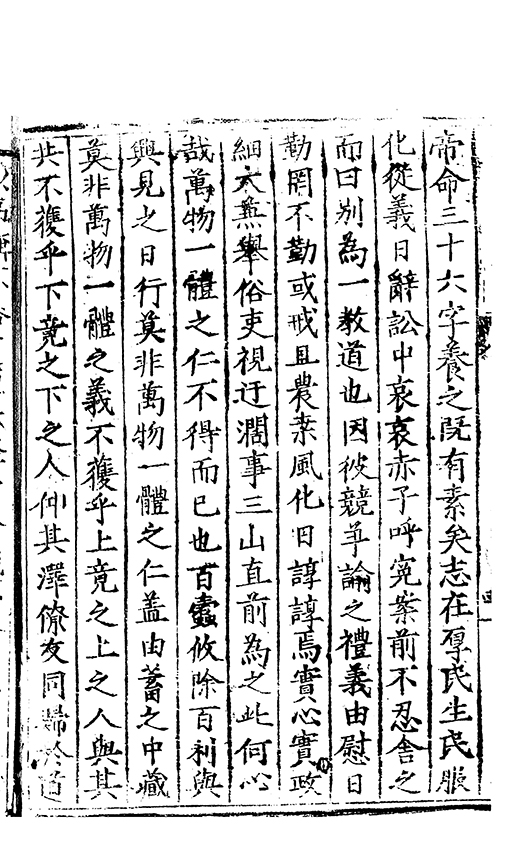 帝命三十六字養之既有素矣志在厚民生民服
化從義日辭訟中哀哀赤子呼寃案前不忍舍之
而曰別為一教道也因彼競爭論之禮義由慰日
勸罔不勤或戒且農桒風化日諄諄焉實心實政
細大無舉俗吏視迂濶事三山直前為之此何心
哉萬物一體之仁不得而已也百蠹攸除百利與
興見之日行莫非萬物一體之仁盖由蓄之中藏
莫非萬物一體之義不獲乎上竟之上之人與其
共不獲乎下竟之下之人仰其澤僚友同歸於道